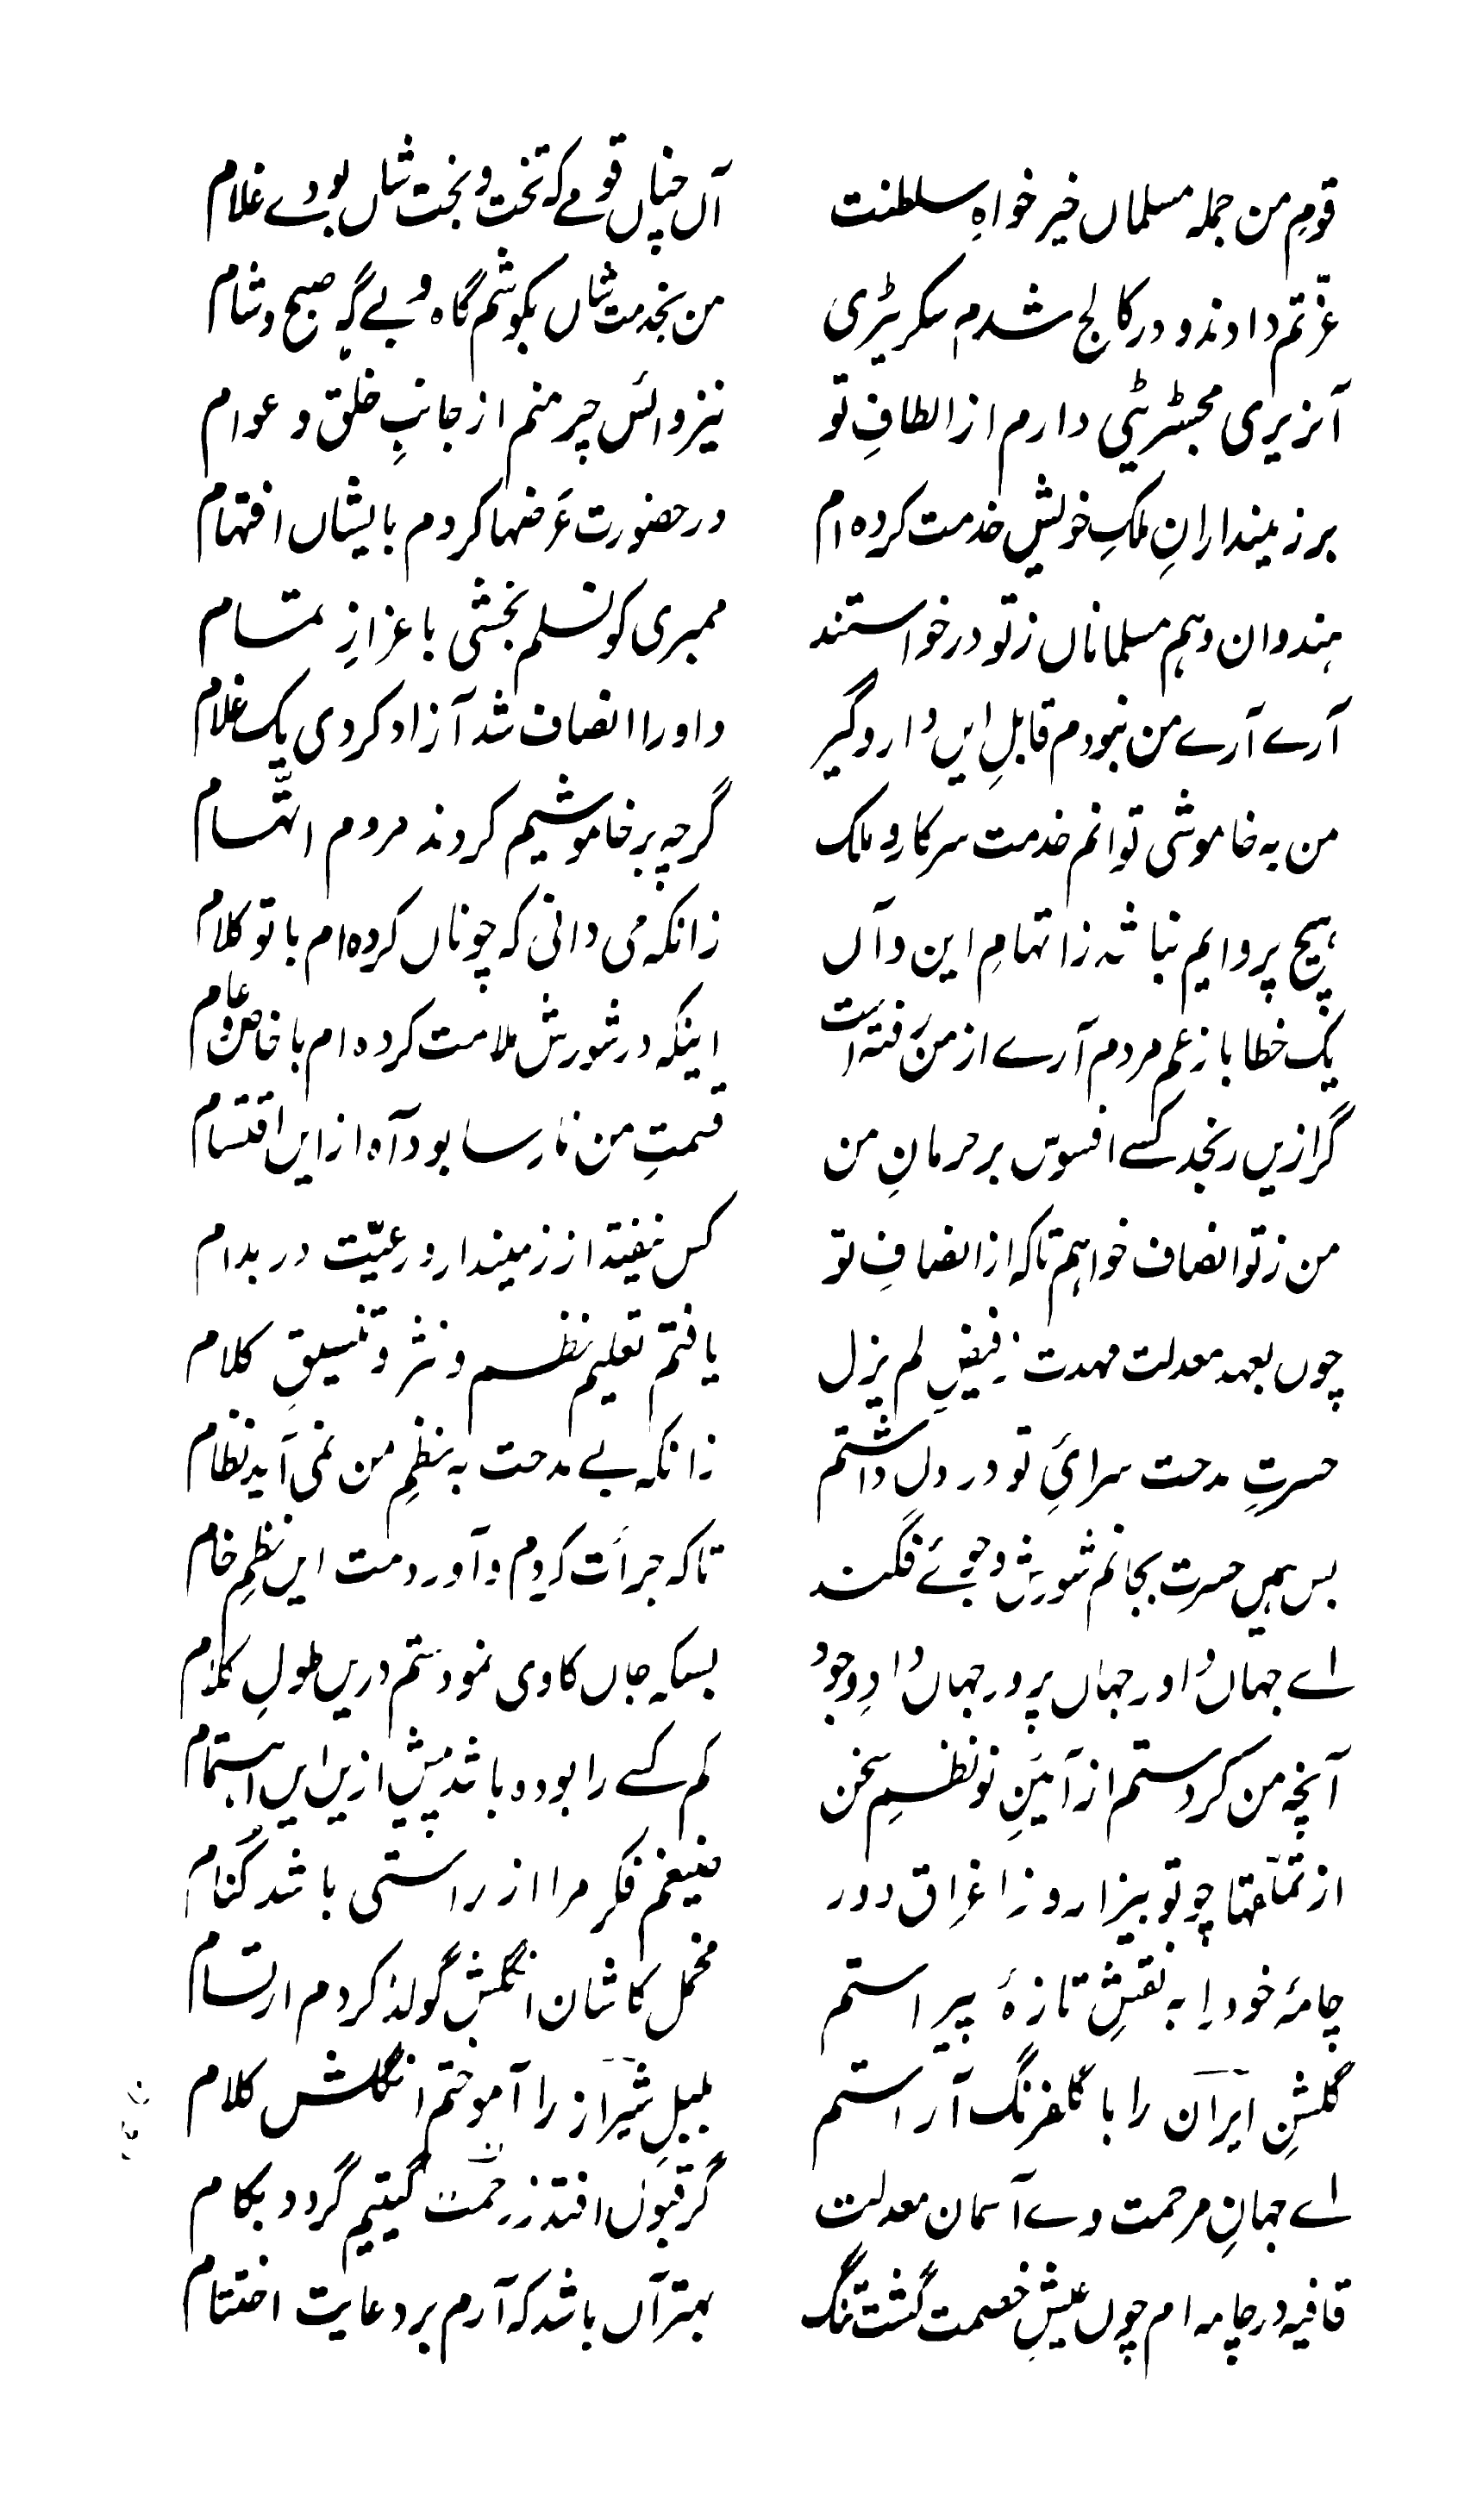 قومِ من جملہ مسلماں خیر خواہِ سلطنت آں چناں قومے کہ تخت و بخت شاں بودے غلام
عزّتم دادند و در کالج شدم سکریٹری من بخدمت شاں بکوشم گاہ و بے گہ صبح و شام
آنریری مجسٹریٹی دارم از الطافِ تو نیز وائس چیرمنم از جانبِ خلق و عوام
بر زمیندارانِ ملکِ خویش خدمت کردہ ام در حضورت عرضہا کردم بایشاں افتہام
ہندوان و ہم مسلماناں ز تو درخواستند ممبری کونسلم بخشی باعزازِ تمام
آرے آرے من نبودم قابلِ ایں دار و گیر داورا انصاف شد آزاد کردی یک غلام
من بہ خاموشی توانم خدمت سرکار و ملک گرچہ بر خاموشیم کردند مردم اتّہام
ہیچ پروایم نباشد ز اتہامِ این و آں زانکہ می دانی کہ چوناں کردہ ام با تو کلام
یک خطا با زعم مردم آرے از من رفتہ است اینکہ در شورش ملامت کردہ ام با خاص و عام
گر ازیں رنجد کسے افسوس بر حرمانِ من قسمتِ من نارسا بود آہ ازایں اقتسام
من ز تو انصاف خواہم تا کہ از انصافِ تو کس نیفتد از زمیندار و رعیّت در بدام
چوں بعہد معدلت مہدت ز فیضِ لم یزل یافتم تعلیم نظم و نثر و تنسیقِ کلام
حسرتِ مدحت سرائیِ تو در دل داشتم زانکہ بے مدحت بہ نظمِ من نمی آید نظام
بس ہمیں حسرت بجانم شورش و جوئے فگند تا کہ جرأت کردم و آوردمت ایں نظمِ خام
اے جہاں داور جہاں پرور جہاں را دِہ وجود بسکہ جاں کاوی نمودستم دریں طولِ کلام
آنچہ من کردستم از آئینِ نو نظمِ سخن کم کسے را بودہ باشد پیش ازیں ایں اہتمام
از تملّقہا چو تو بیزار و ز اغراق دور ضیغم فکر مرا از راستی باشد کُنام
چامۂ خود را بہ نقشِ تازۂ پیراستم مخمل کاشان انگلش گولڈ کردم ارتسام
گلشنِ ایران را با گلفرنگ آراستم بلبلِ شیراز را آموختم انگلش کلام
اے جہانِ مرحمت وے آسمان معدلت گر قبول افتد ز رحمت گیتیم گردد بکام
قافیہ در چامہ ام چوں عیشِ خصمت گشت تنگ بہتر آں باشد کہ آرم بر دعایت اختتام